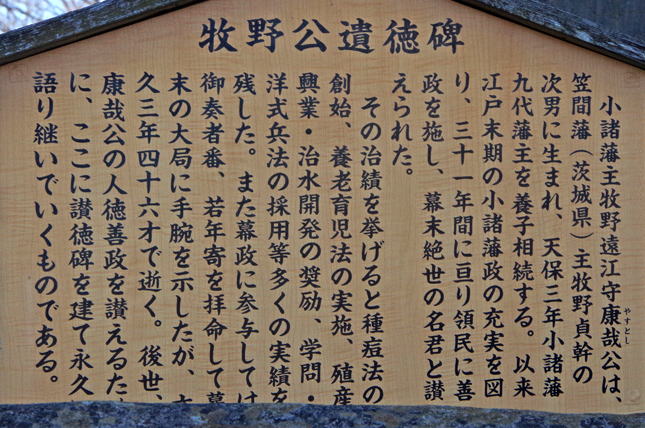 牧野公遺徳碑
小諸藩主牧野遠江守康哉公は、
やすとし
笠間藩（茨城県）主牧野貞幹の
次男に生まれ、天保三年小諸藩
九代藩主を養子相続する。以来
江戸末期の小諸藩政の充実を図
り、三十一年間に亘り領民に善
政を施し、幕末絶世の名君と讃
えられた。
その治績を挙げると種痘法の
創始、養老育児法の実施、殖産
興業・治水開発の奨励、学問・
洋式兵法の採用等多くの実績を
残した。また幕政に参与しては
御奏者番、若年寄を拝命して幕
末の大局に手腕を示したが、
久三年四十六才で逝く。後世、
康哉公の人徳善政を讃えるた
に、ここに讃徳碑を建て永久
語り継いでいくものである。